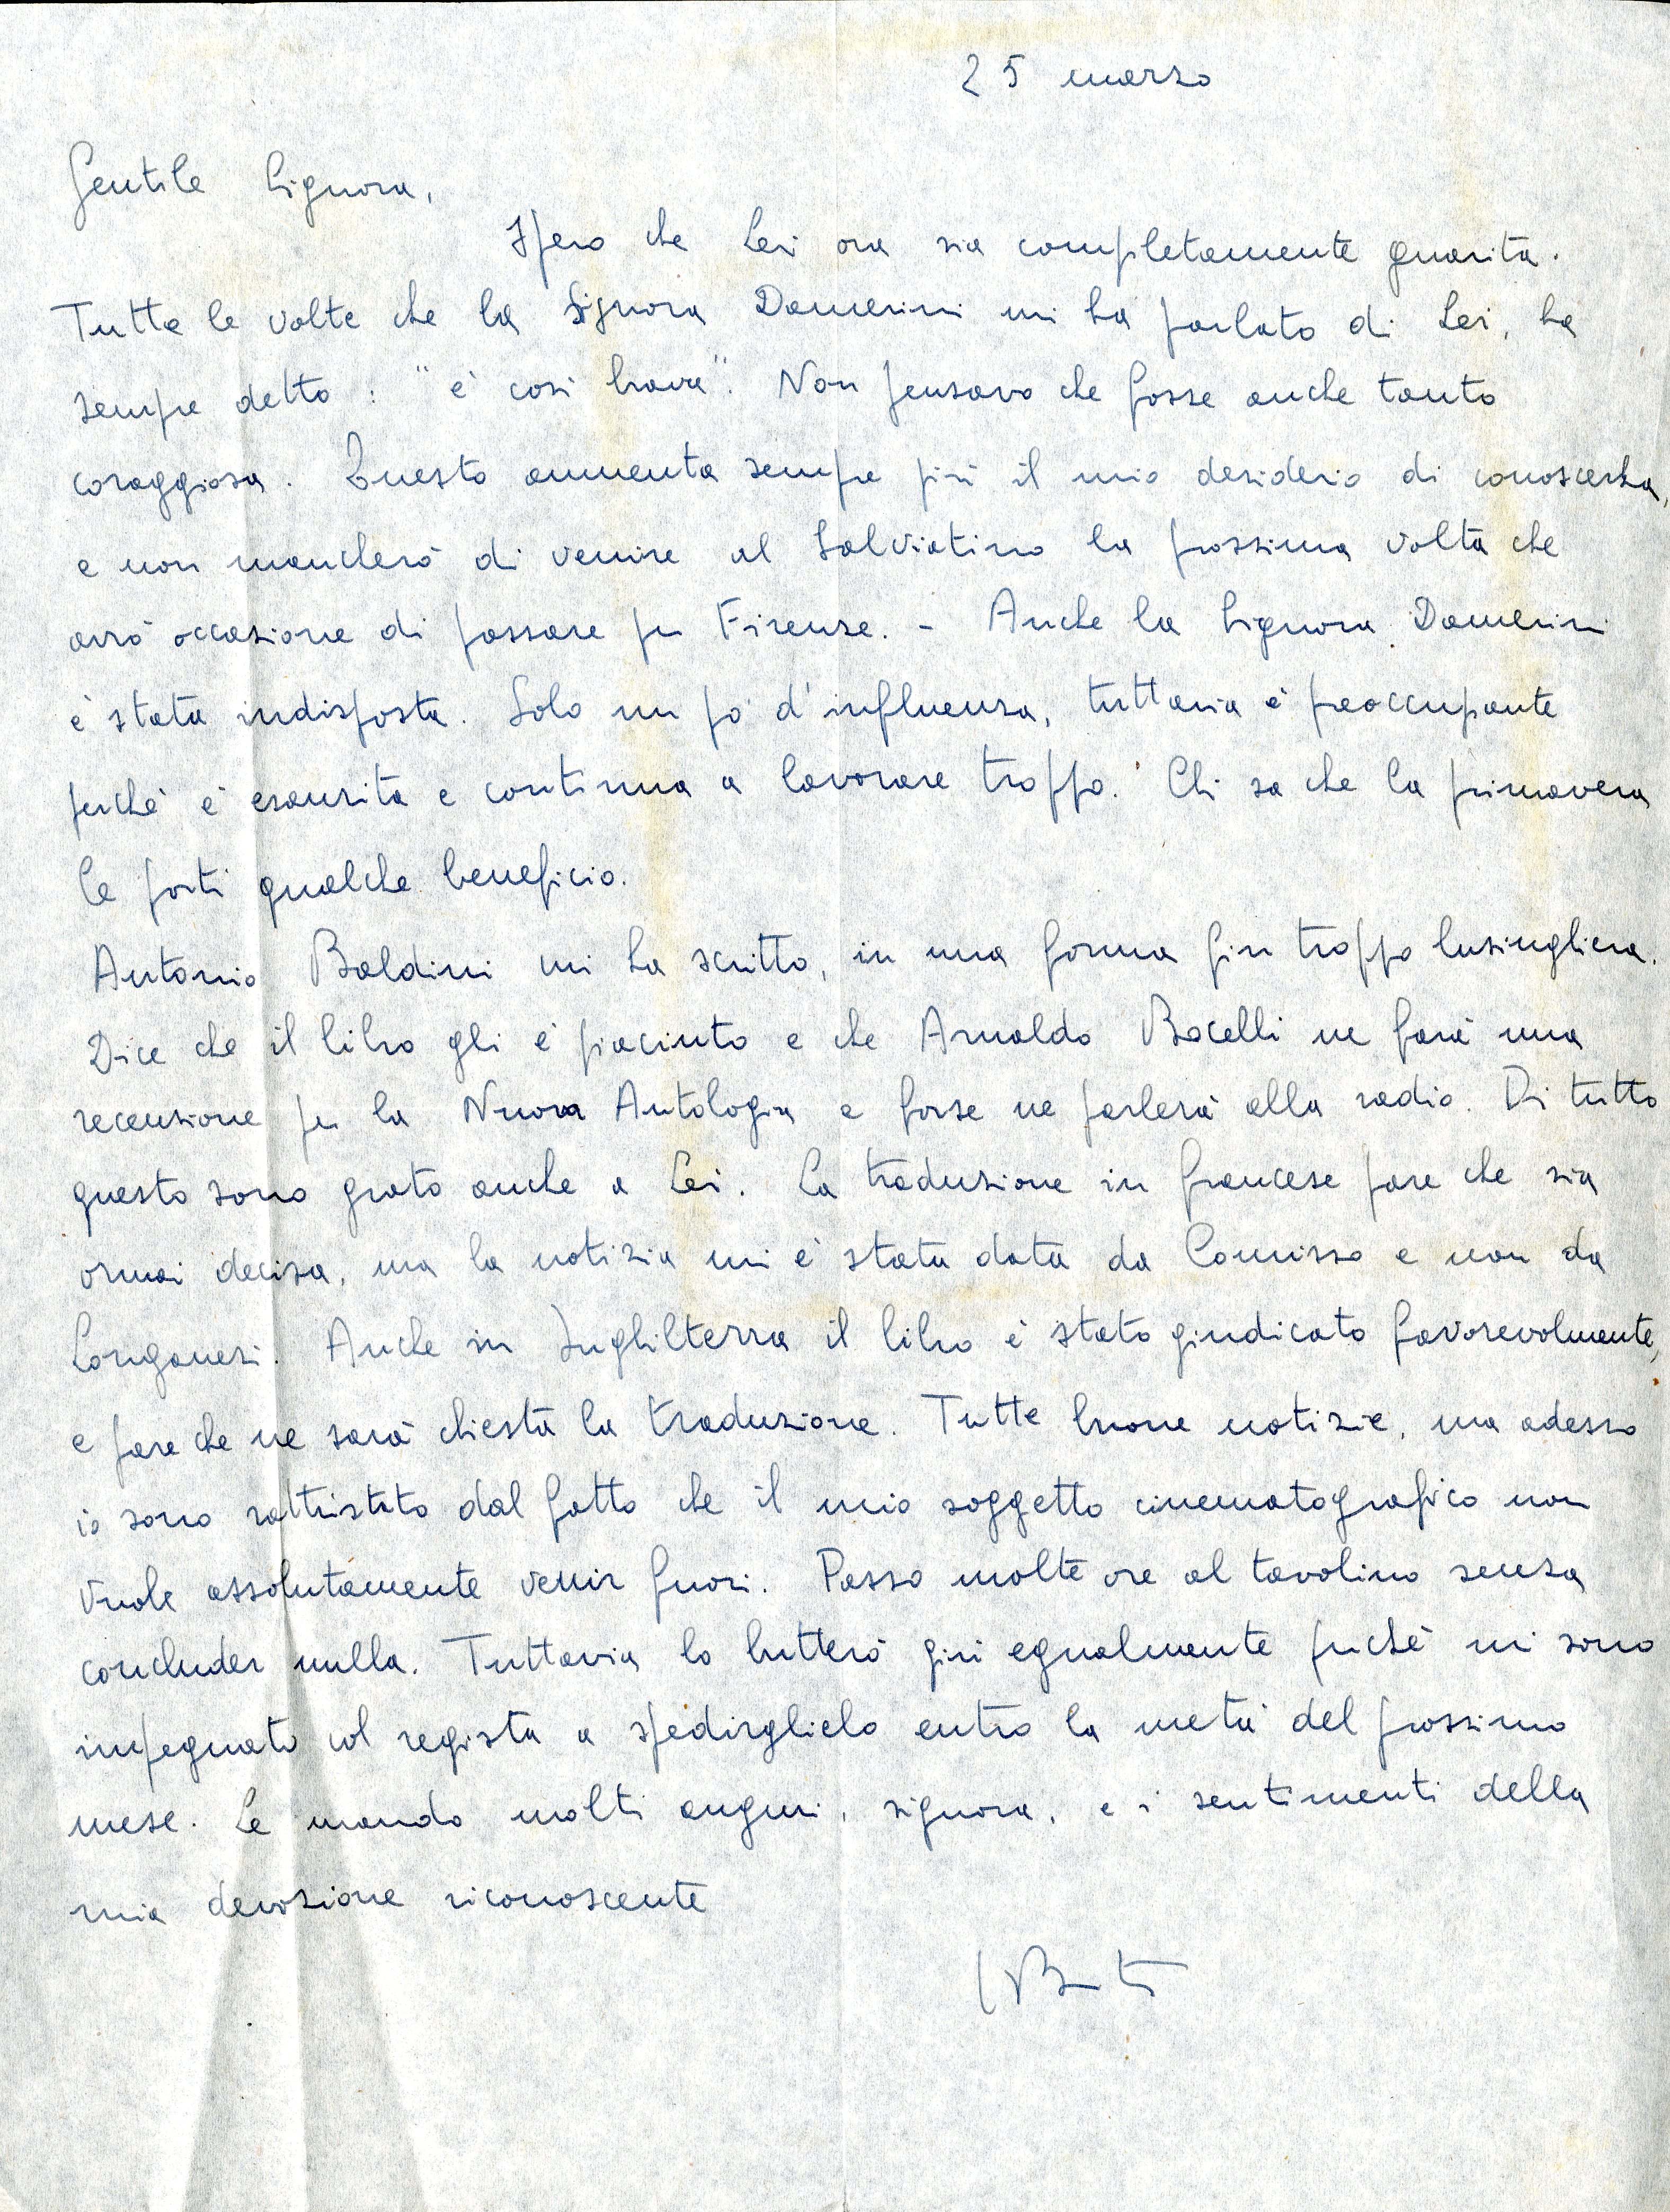 25 marzo
Gentile Signora,
Spero che Lei ora sia completamente guarita.
Tutte le volte che la Signora Damerini mi ha parlato di Lei, ha
sempre detto: "è così brava". Non pensavo che fosse anche tanto
coraggiosa. Questo aumenta sempre più il mio desiderio di conoscerla,
e non mancherò di venire al Salviatino la prossima volta che
avrò occasione di passare per Firenze. - Anche la Signora Damerini
è stata indisposta. Solo un po' d'influenza, tuttavia è preoccupante
perché è esaurita e continua a lavorare troppo. Chi sa che la primavera
le porti qualche beneficio.
Antonio Baldini mi ha scritto, in una forma fin troppo lusinghiera.
Dice che il libro gli è piaciuto e che Arnaldo Bocelli ne farà una
recensione per la Nuova Antologia e forse ne parlerà alla radio. Di tutto
questo sono grato anche a Lei. La traduzione in francese pare che sia
ormai decisa, ma la notizia mi è stata data da Comisso e non da
Longanesi. Anche in Inghilterra il libro è stato giudicato favorevolmente,
e pare che ne sarà chiesta la traduzione. Tutte buone notizie, ma adesso
io sono rattristato dal fatto che il mio soggetto cinematografico non
vuole assolutamente venir fuori. Passo molte ore al tavolino senza
concluder nulla. Tuttavia lo butterò giù egualmente perché mi sono
impegnato col regista a spedirglielo entro la metà del prossimo
mese. Le mando molti auguri, signora, e i sentimenti della
mia devozione riconoscente